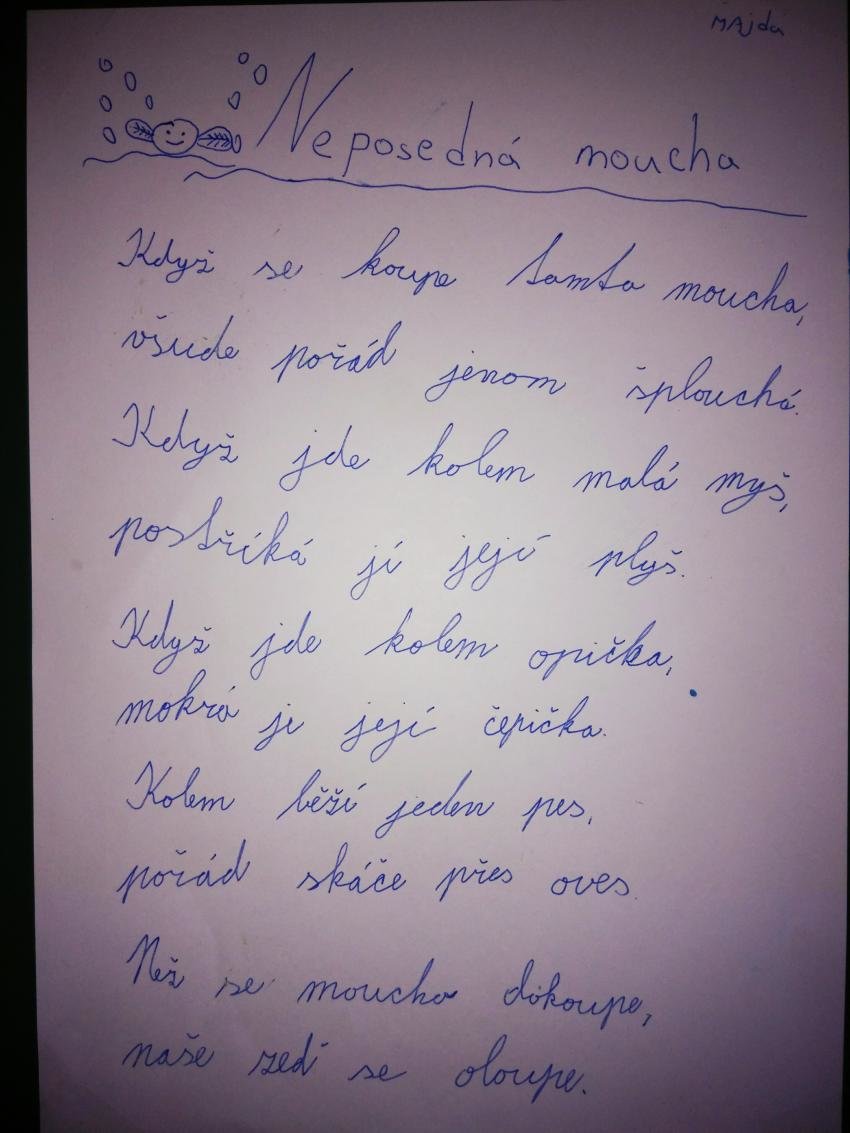 MAjda
Neposedná moucha
Když se koupe tamta moucha,
všude pořád jenom šplouchá.
Když jde kolem malá myš,
postříká jí její plyš.
Když jde kolem opička,
mokrá je její čepička.
Kolem běží jeden pes,
pořád skáče přes oves.
Než se moucha dokoupe,
naše zeď se oloupe.